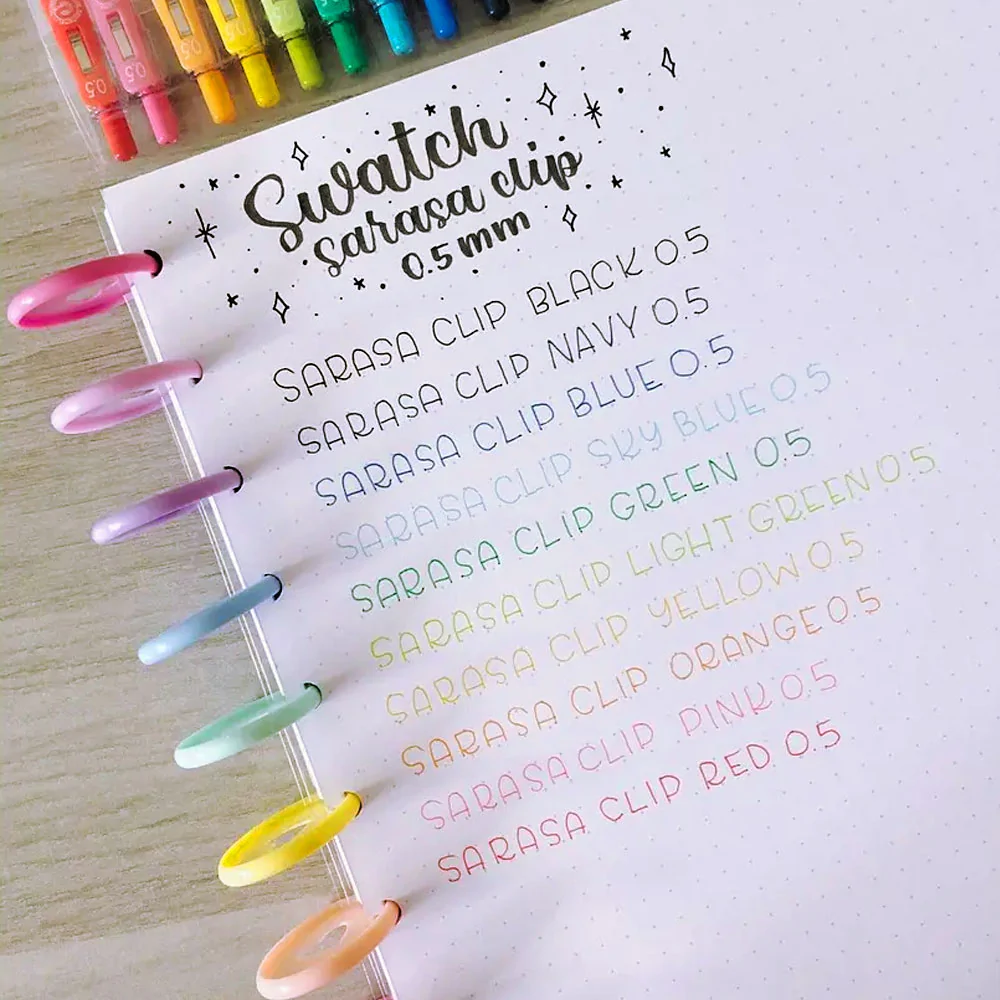 0.5 0.5 0.5 0.5
Swatch
sarasa clip
0.5 mm
SARASA CLIP BLACK 0.5
SARASA CLIP NAVY 0.5
SARASA CLIP BLUE 0.5
SARASA CLIP SKY BLUE 0.5
SARASA CLIP GREEN 0.5
SARASA CLIP LIGHT GREEN 0.5
SARASA CLIP YELLOW 0.5
SARASA CLIP ORANGE 0.5
SARASA CLIP PINK 0.5
SARASA CLIP RED 0.5